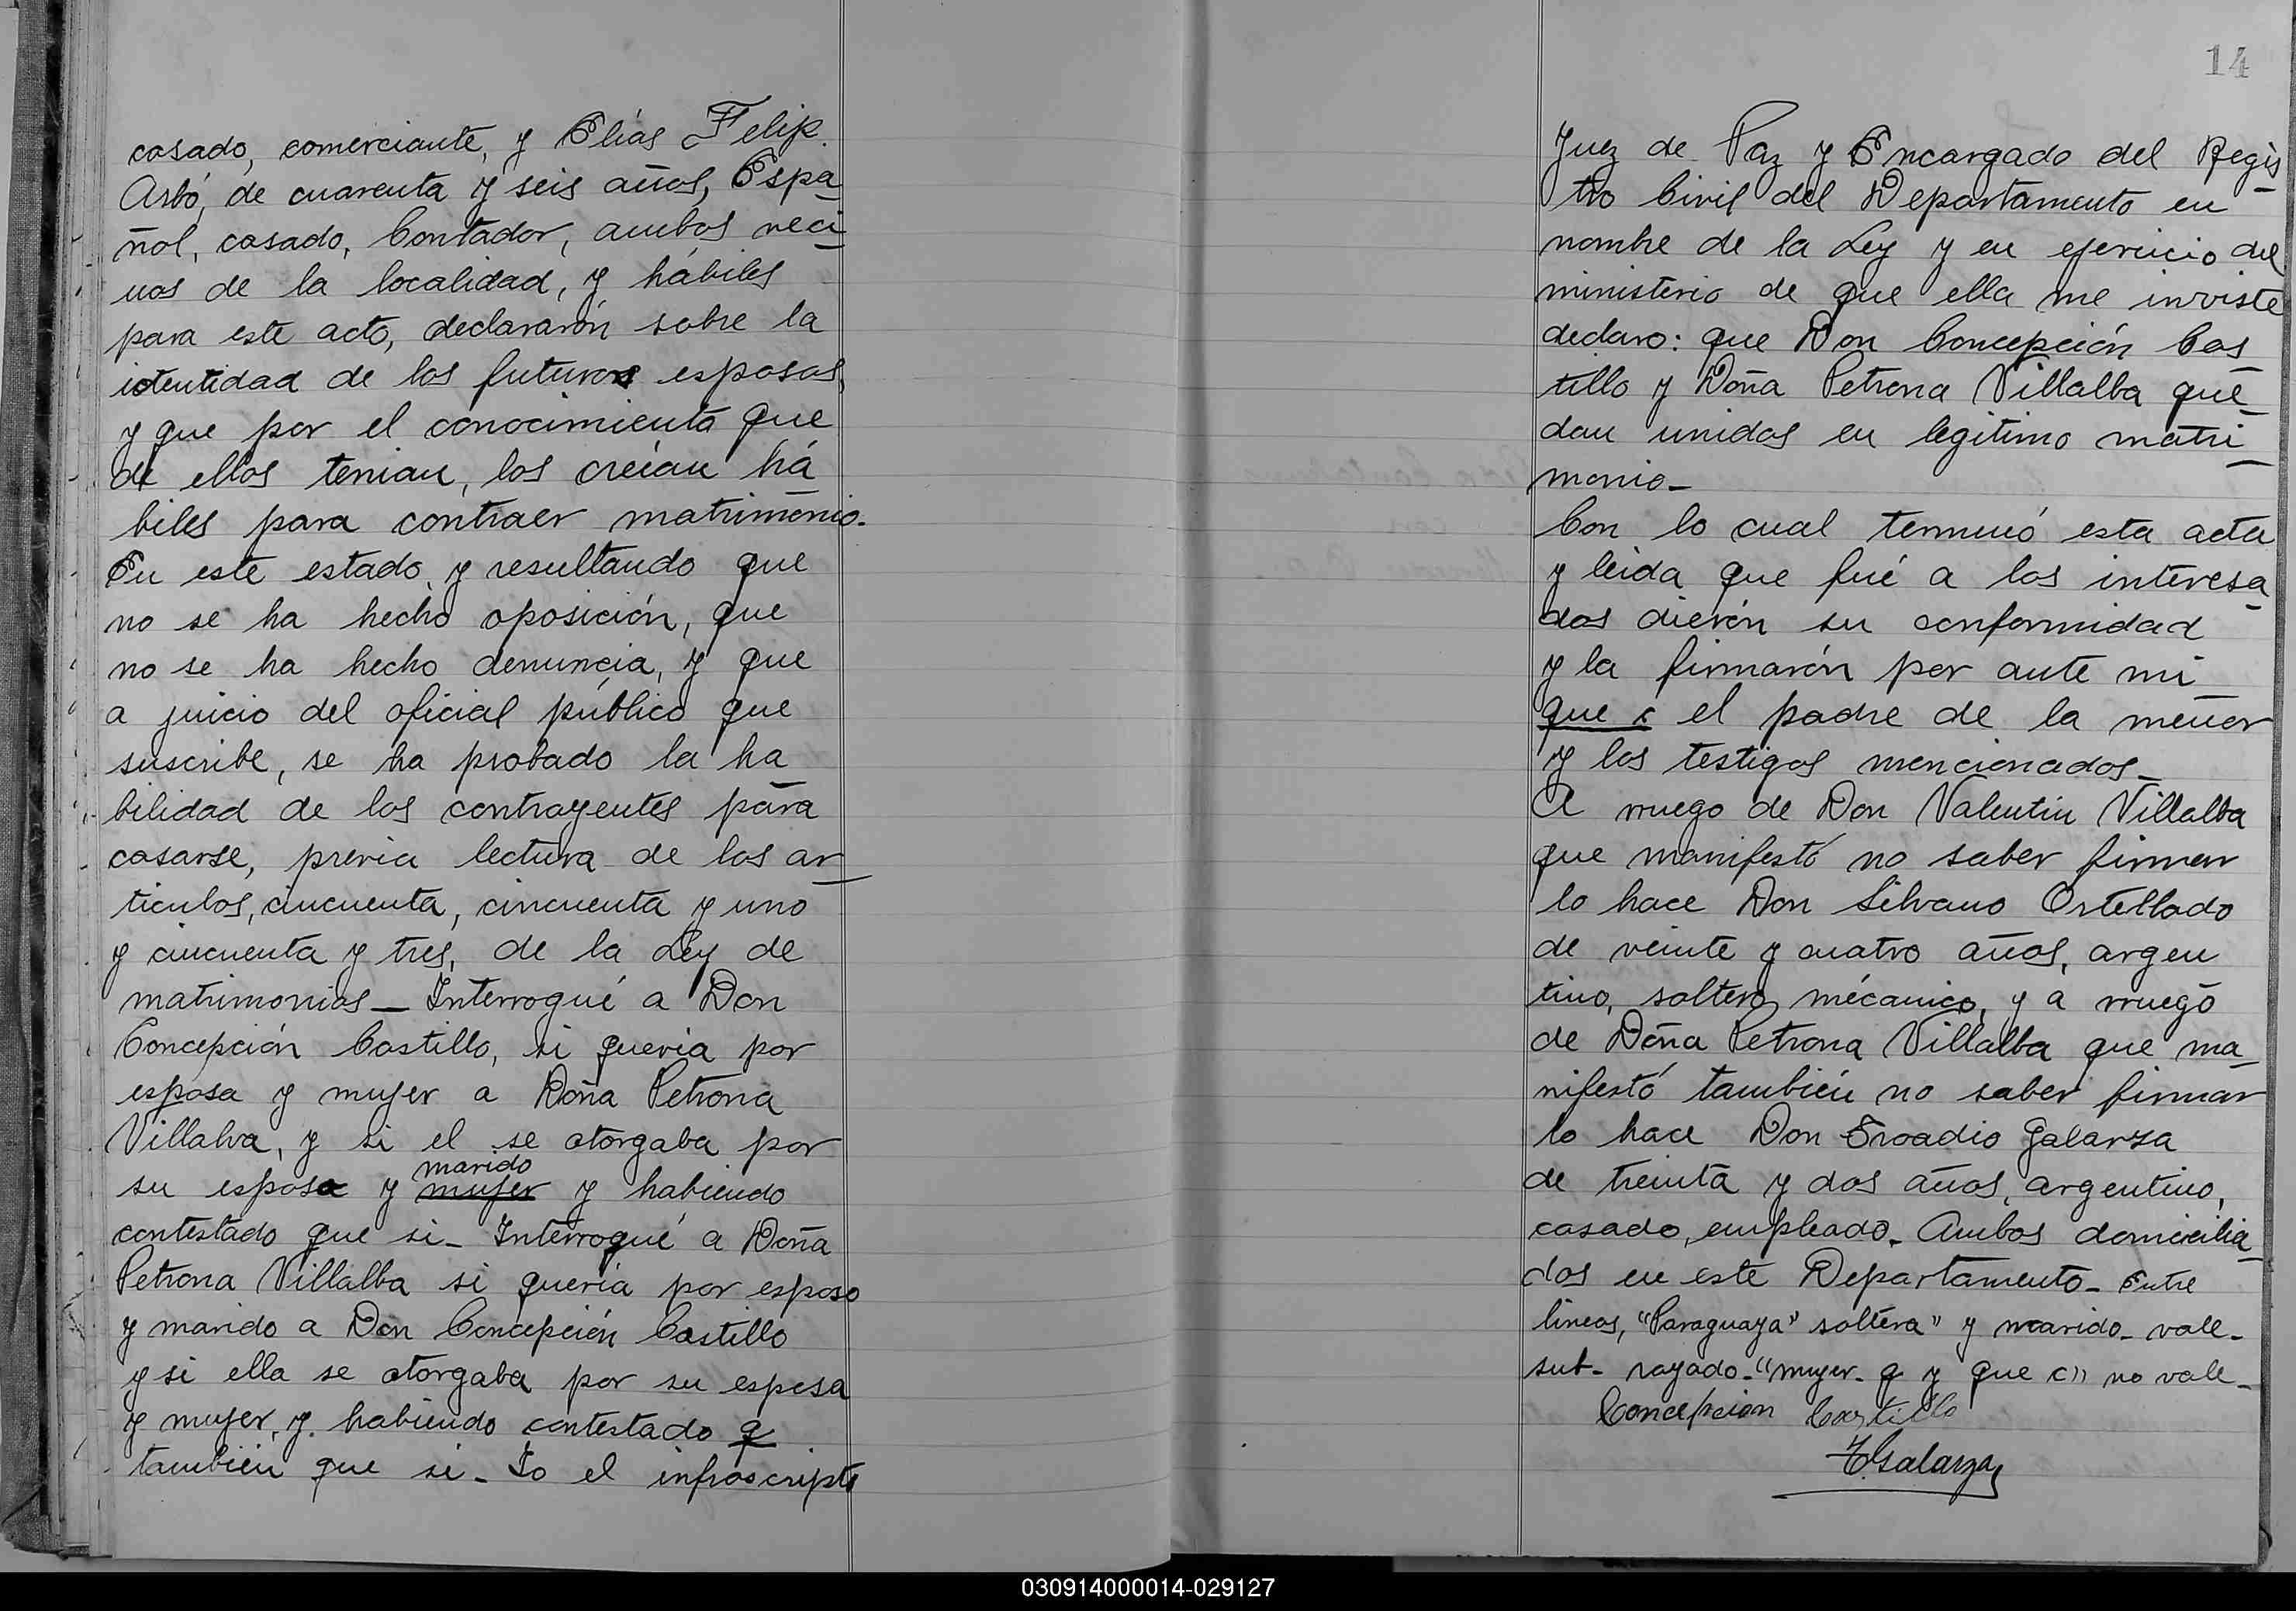 casado, comerciante, y Elías Felip.
Asbó, de cuarenta y seis años, Espa
ñol, casado, Contador, ambos veci
nos de la localidad, y hábiles
para este acto, declararón sobre la
identidad de los futuros esposos,
y que por el conocimiento que
de ellos tenian, los creían há
biles para contraer matrimonio.
En este estado, y resultando que
no se ha hecho oposición, que
no se ha hecho denuncia, y que
a juicio del oficial público que
suscribe, se ha probado la ha
bilidad de los contrayentes para
casarse, previa lectura de los ar
ticulos, cincuenta, cincuenta y uno
y cincuenta y tres, de la Ley de
matrimonios_ Interrogué a Don
Concepción Castillo, si queria por
esposa y mujer a Doña Petrona
Villalva, y si el se otorgaba por
marido
su esposo y mujer y habiendo
contestado que si_ Interrogué a Doña
Petrona Villalba si quería por esposo
y marido a Don Concepción Castillo
y si ella se otorgaba por su esposa
y mujer, y. habiendo contestado q
también que si_ Yo el infrascripto
14
Juez de Paz y Encargado del Regis
tro Civil del Departamento en
nombre de la Ley y en ejercicio del
ministerio de que ella me inviste
declaro: que Don Concepción Cas
tillo y Doña Petrona Villalba que
dan unidos en legitimo matri
monio_
Con lo cual terminó esta acta
y leida que fué a los interesa
dos dierón su conformidad
y la firmarón por ante mi
que c el padre de la menor
y los testigos mencionados_
A rruego de Don Valentin Villalba
que manifestó no saber firmar
lo hace Don Silvano Ortellado
de veinte y cuatro años, argen
tino, soltero, mécanico, y a rruego
de Doña Petrona Villalba que ma
nifestó también no saber firmar
lo hace Don Eroadio Galarza
de treinta y dos años, argentino,
casado, empleado_ Ambos domicilia
dos en este Departamento_ Entre
lineas, "Paraguaya" soltera" y marido_ vale_
sub_ rayado_ "mujer_ q y que c" no vale_
Concepcion Castillo
E. Galarza
030914000014-029127